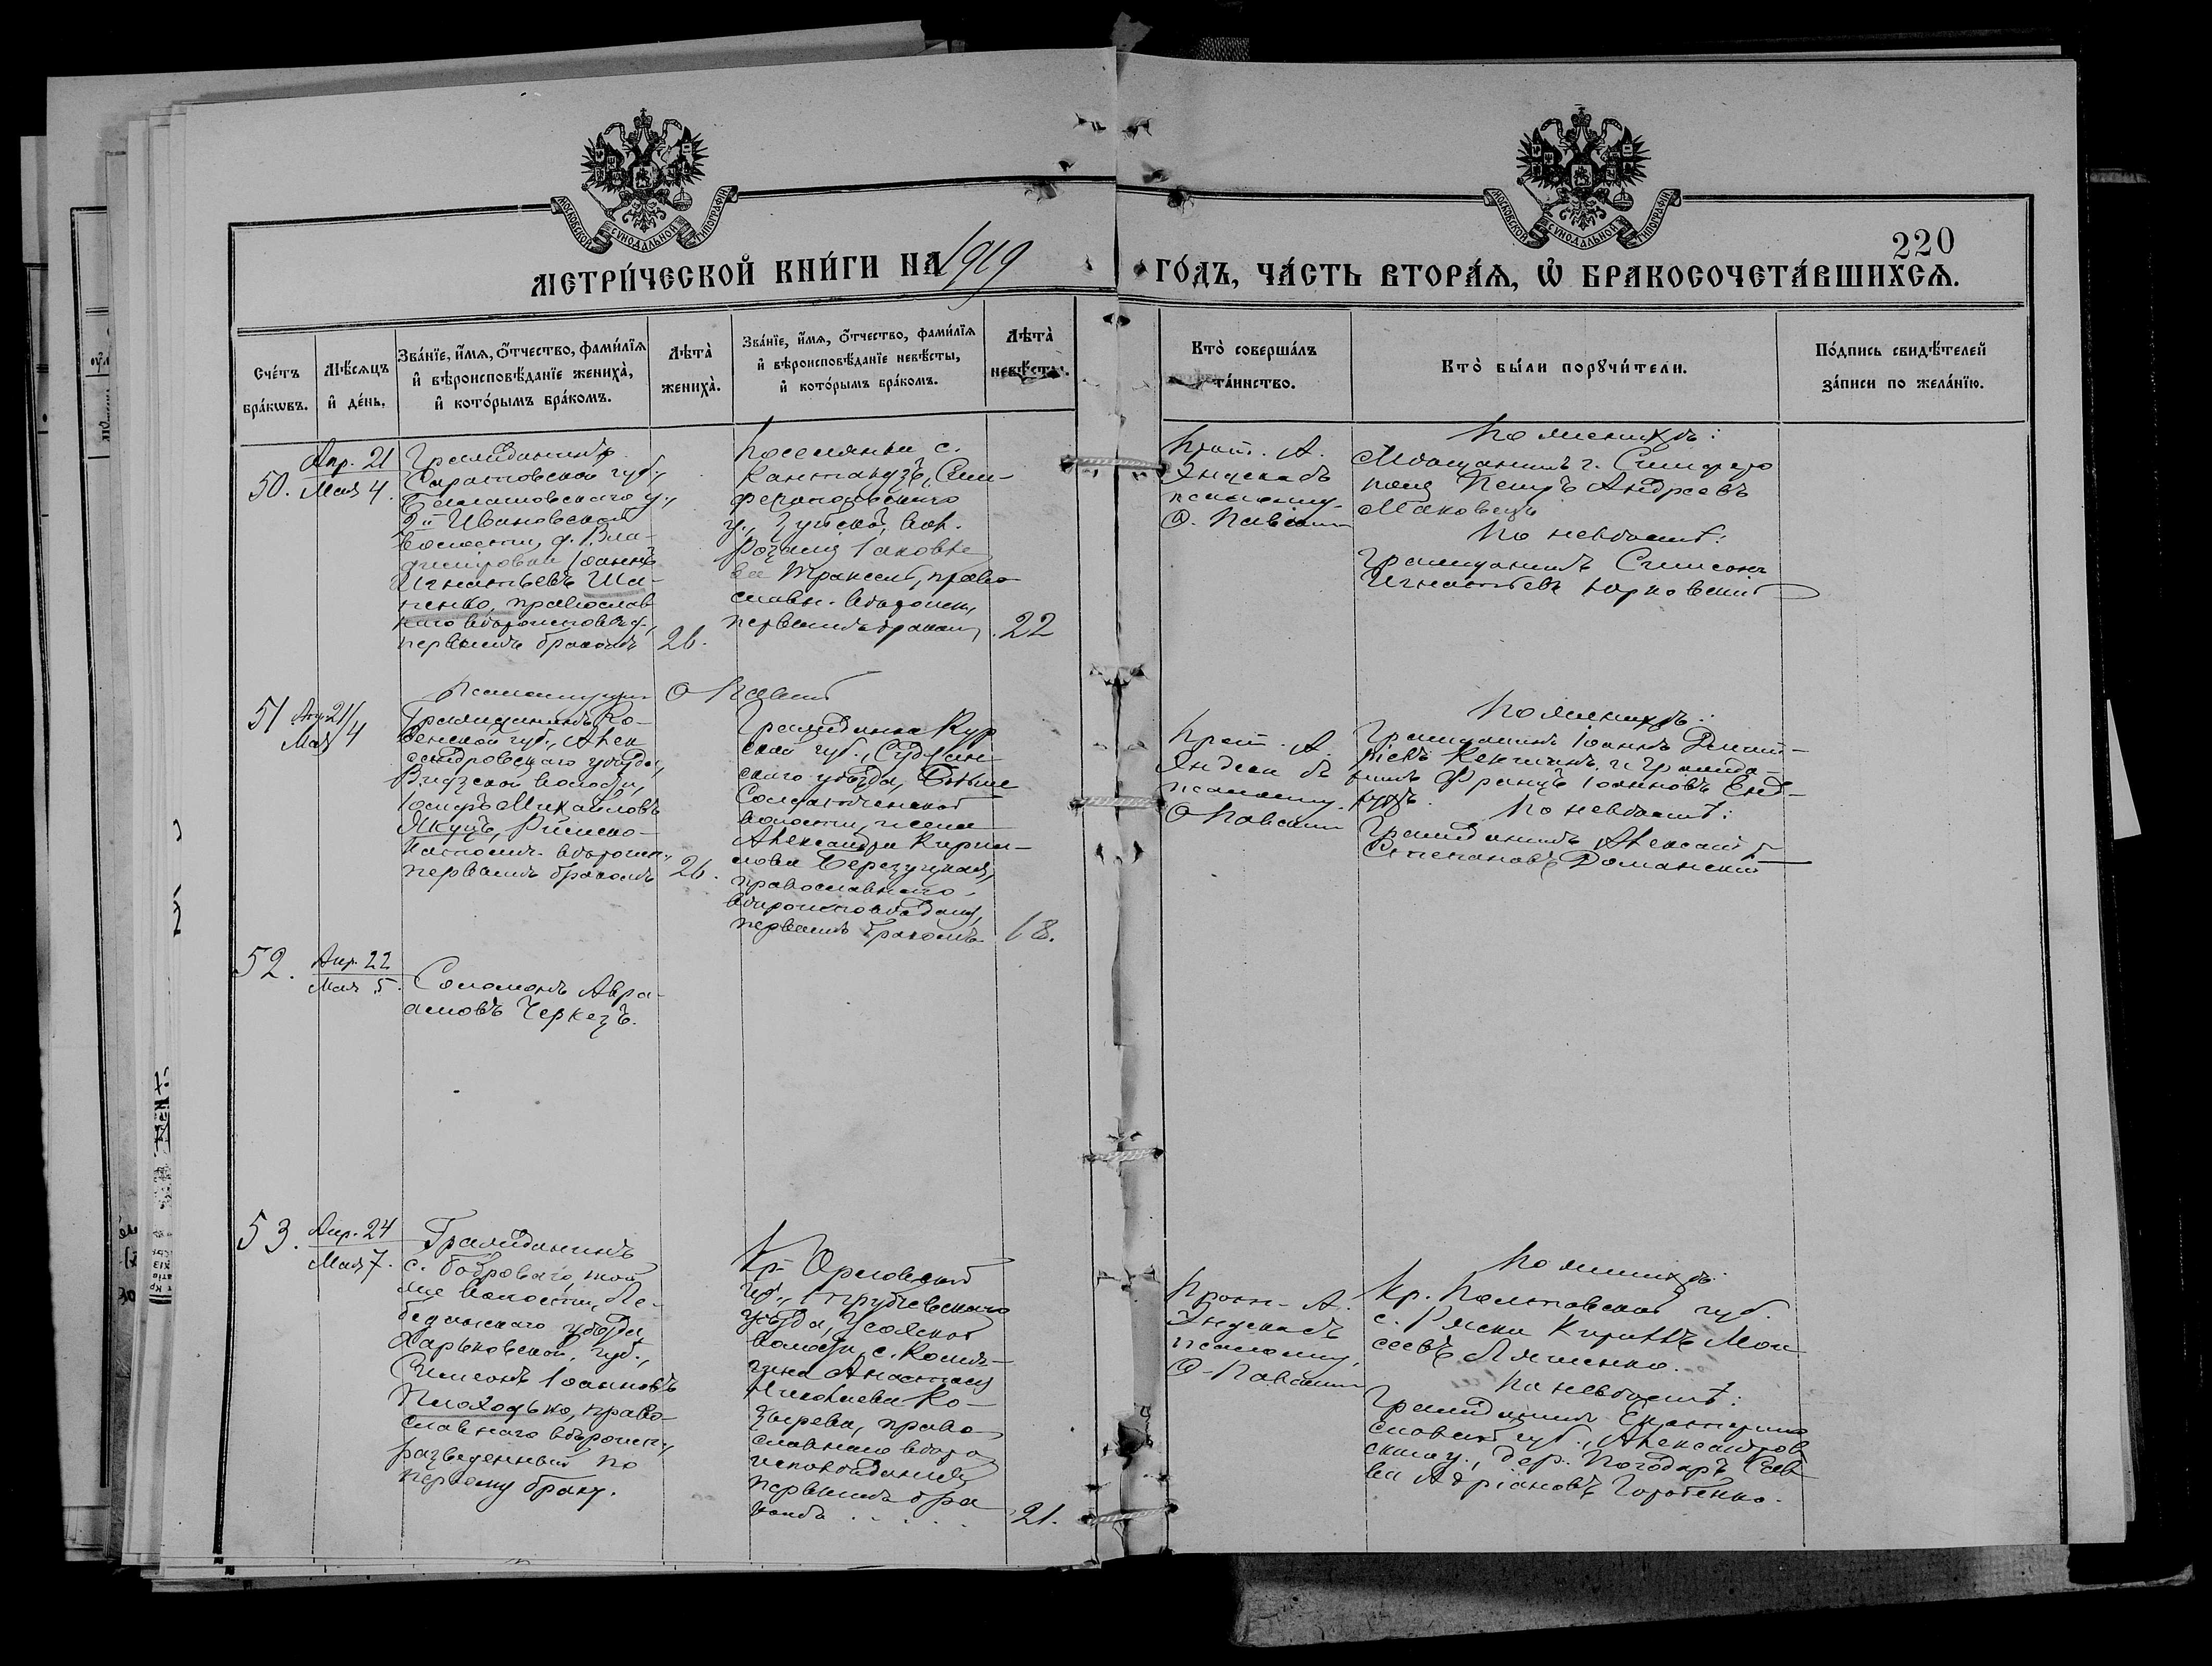 МОСКОВСКОЙ СѴНОДАЛЬНОЙ ТИПОГРАФІИ
МОСКОВСКОЙ СѴНОДАЛЬНОЙ ТИПОГРАФІИ
220
МЕТРИ́ЧЕСКОЙ КНИ́ГИ НА 1919
ГО́ДЪ, ЧА́СТЬ ВТОРА́Я, Ѡ҆ БРАКОСОЧЕТА́ВШИХСЯ.
Сче́тъ бра́кѡвъ.
Мѣ́сяцъ и҆ де́нь.
Зва́нїе, и҆́мя, ѻ҆́тчество, фами́лїя
и҆ вѣроисповѣ́данїе жениха̀,
и҆ кото́рымъ бра́комъ.
Лѣта̀ жениха̀.
Зва́нїе, и҆́мя, ѻ҆́тчество, фами́лїя
и҆ вѣроисповѣ́данїе невѣ́сты,
и҆ кото́рымъ бра́комъ.
Лѣта̀ невѣ́сты.
Кто̀ соверша́лъ
та́инство.
Кто̀ бы́ли порꙋчи́тели.
По́дпись свидѣ́телей
за́писи по жела́нїю.
50.
Апр. 21
Мая 4.
Гражданинъ
Саратовской губ.,
Балашовскаго у.,
2й Ивановской
волости, д. Вла-
димировки Іоаннъ
Игнатьевъ Ша-
пенко, православ
наго вѣроисповѣд.,
первымъ бракомъ
26.
Поселянка с.
Кантакузъ, Сим-
феропольскаго
у., Зуйской вол.
Розалія Іаковле
ва Траксель, право
славн. вѣроисп.,
первымъ бракомъ
22
Прот. А.
Яндека съ
псаломщ.
О. Павскимъ
По женихѣ:
Мѣщанинъ г. Симферо
поля Петръ Андреевъ
Маковецъ
По невѣстѣ:
Гражданинъ Симеонъ
Игнатьевъ Юрковскій
Псаломщикъ О Павскій
51
Апр. 21/
Мая 4
Гражданинъ Ко-
венской губ., Алек
сандровскаго уѣзда,
Видзской волости,
Іосифъ Михайловъ
Якуцъ, Римско-
Католич. вѣроисп.,
первымъ бракомъ
26.
Гражданка Кур
ской губ., Суджан-
скаго уѣзда, Больше
Солдатченской
волости и села
Александра Кирил-
лова Березуцкая,
православнаго
вѣроисповѣданія,
первымъ бракомъ
18.
Прот. А.
Яндека съ
псаломщ.
О Павскимъ
По женихѣ:
Гражданинъ Іоаннъ Димит-
ріевъ и Гражда-
нинъ Францъ Іоанновъ
По невѣстѣ:
Гражданинъ Алексѣй
Степановъ Доманскій
52.
Апр. 22
Мая 5.
Соломонъ Авра-
амовъ Черкезъ.
53.
Апр. 24
Мая 7.
Гражданинъ
с. Боброваго, той
же волости, Ле-
бединскаго уѣзда
Харьковской губ.,
Симеонъ Іоанновъ
Плоходько, право-
славнаго вѣроисп.,
разведенный по
первому браку.
Кр. Орловской
губ., Трубчевскаго
уѣзда, Усожской
волости, с.
Анастасія
Николаева Ко-
зырева, право
славнаго вѣро
исповѣданія
первымъ бра
комъ . . . . .
21.
Прот. А.
Яндека съ
псаломщ.
О. Павскимъ
По женихѣ:
Кр. Полтавской губ.
с. Ряски Кириллъ Мои
сеевъ Ляшенко.
По невѣстѣ:
Гражданинъ Екатерино
славской губ., Александров
скаго у., дер. Сав
ва Адріановъ Горобенко.